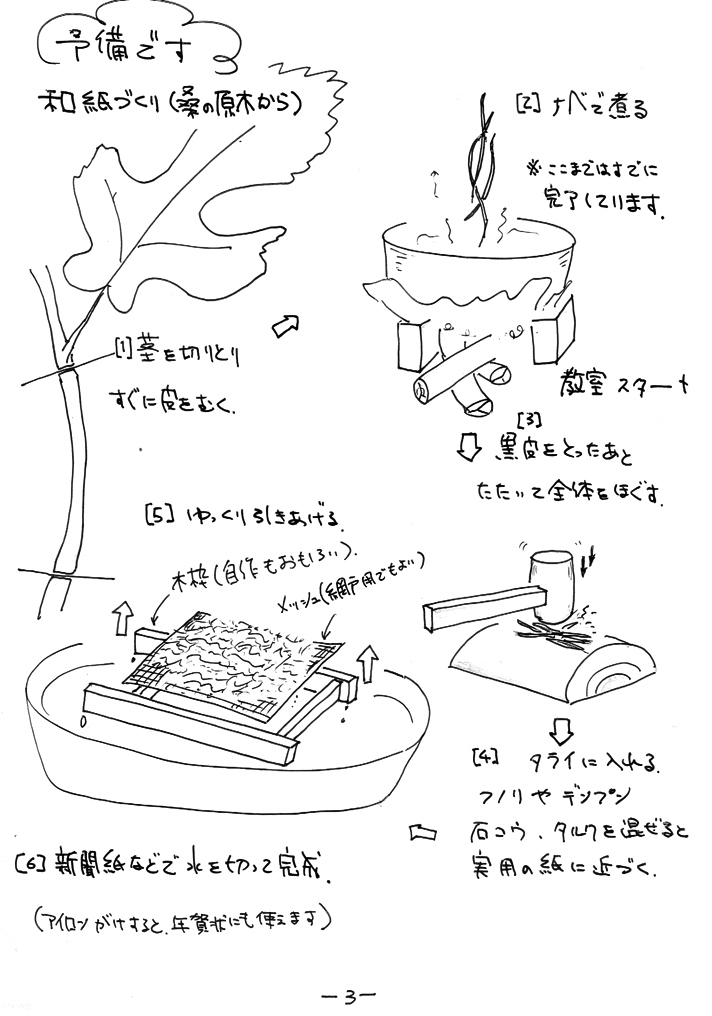 予備です
和紙づくり(桑の原木から)
[1]茎を切りとり
すぐに皮をむく.
[2] ナベで煮る
※ここまではすでに
完了しています.
教室スタート
[3]
黒皮をとったあと
たたいて全体をほぐす.
[4] タライに入れる.
フノリやデンプン
石コウ、タルクを混ぜると
実用の紙に近づく.
[5] ゆっくり引きあげる.
木枠(自作もおもしろい).
メッシュ(網戸用でもよい)
[6]新聞紙などで水を切って完成.
(アイロンがけすると、年賀状にも使えます)
-3-